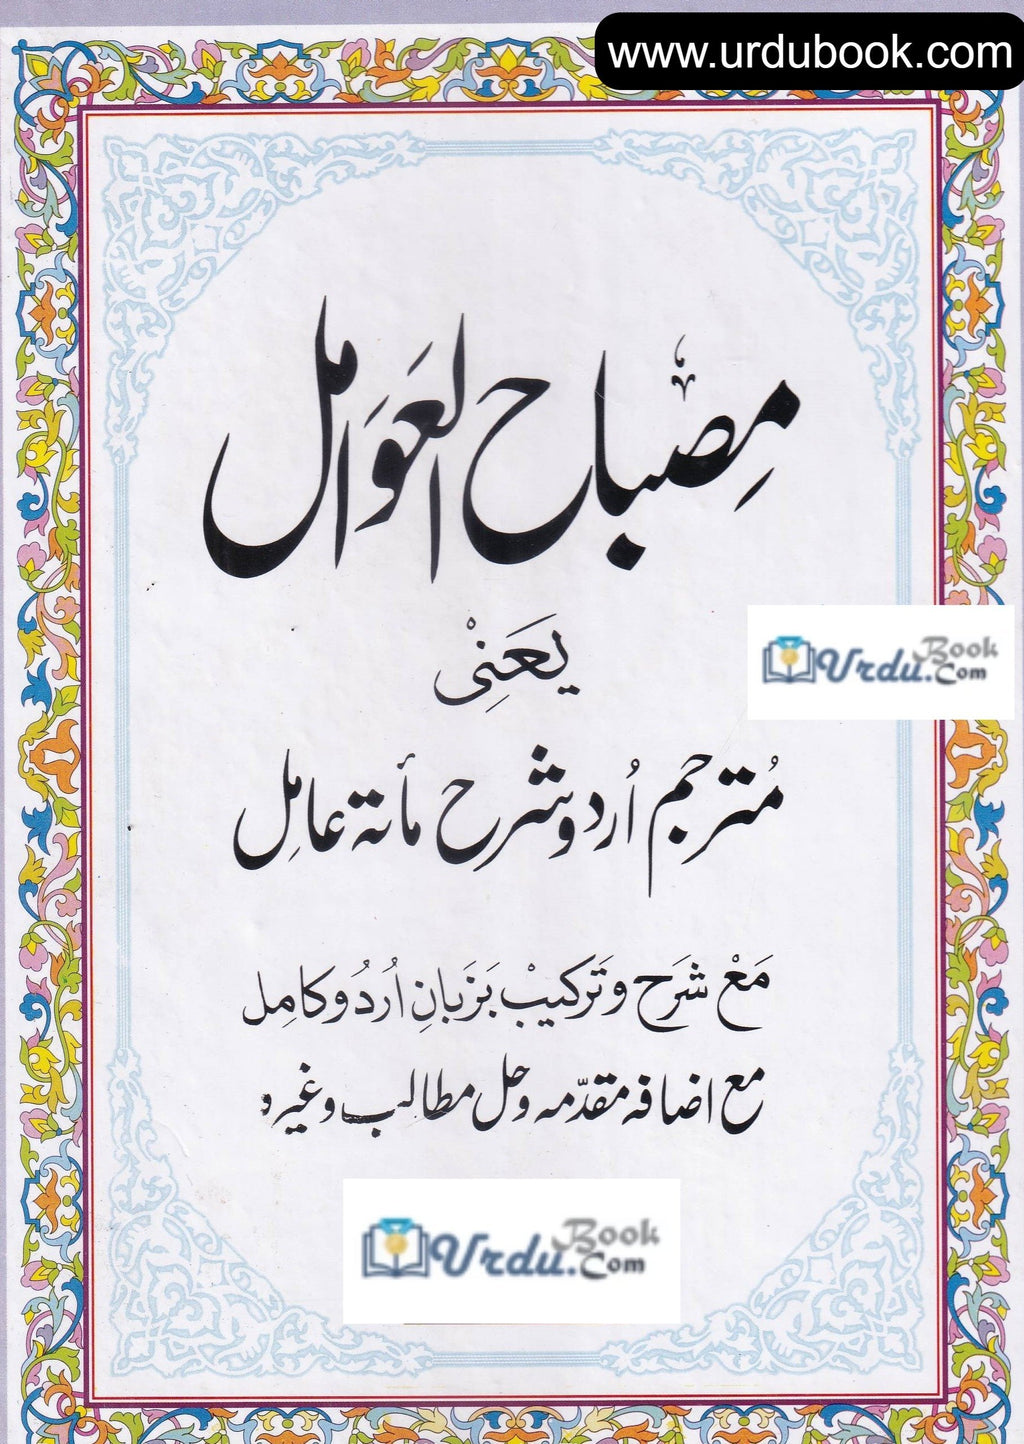 www.urdubook.com
مِصْباح العَوَامل
یَعَنِیْ
Urdu Book .Com
مُترجم اُردو شرح مأتہ عامِل
مَعْ شَرَح وَتَرکیبْ بَزَبانِ اُردُو کامِل
مع اضافہ مقدّمہ وحل مطالب وغیرہ
Urdu Book .Com